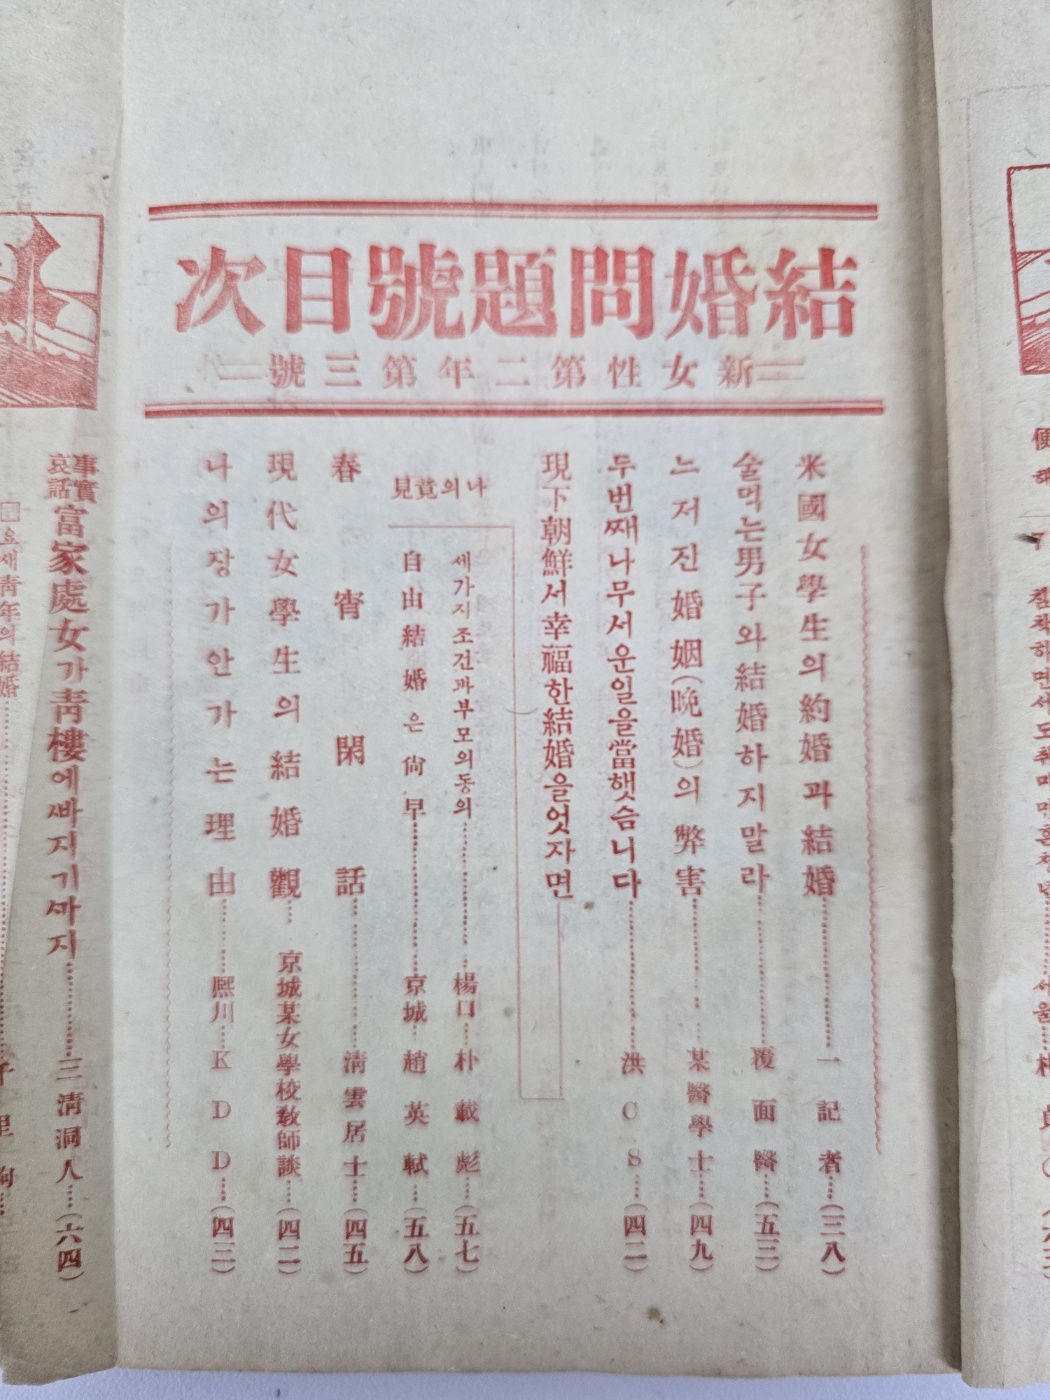 結婚問題號目次
新女性第二年第三號
米國女學生의約婚과結婚……一記者…(三八)
술먹는男子와結婚하지말라……覆面醫…(五三)
느저진婚姻(晩婚)의弊害……某醫學士…(四九)
두번째나무서운일을當햇슴니다……洪CS…(四二)
現下朝鮮서幸福한結婚을엇자면
나의意見
세가지조건과부모의동의……楊口…朴載彪…(五七)
自由結婚은尙早……京城…趙英軾…(五八)
春宵閑話……淸雲居士…(四五)
現代女學生의結婚觀…京城某女學校敎師談…(四二)
나의장가안가는理由……熙川…KDD…(四三)
事實哀話 富家處女가靑樓에빠지기까지……三淸洞人…(六四)
요새靑年의結婚